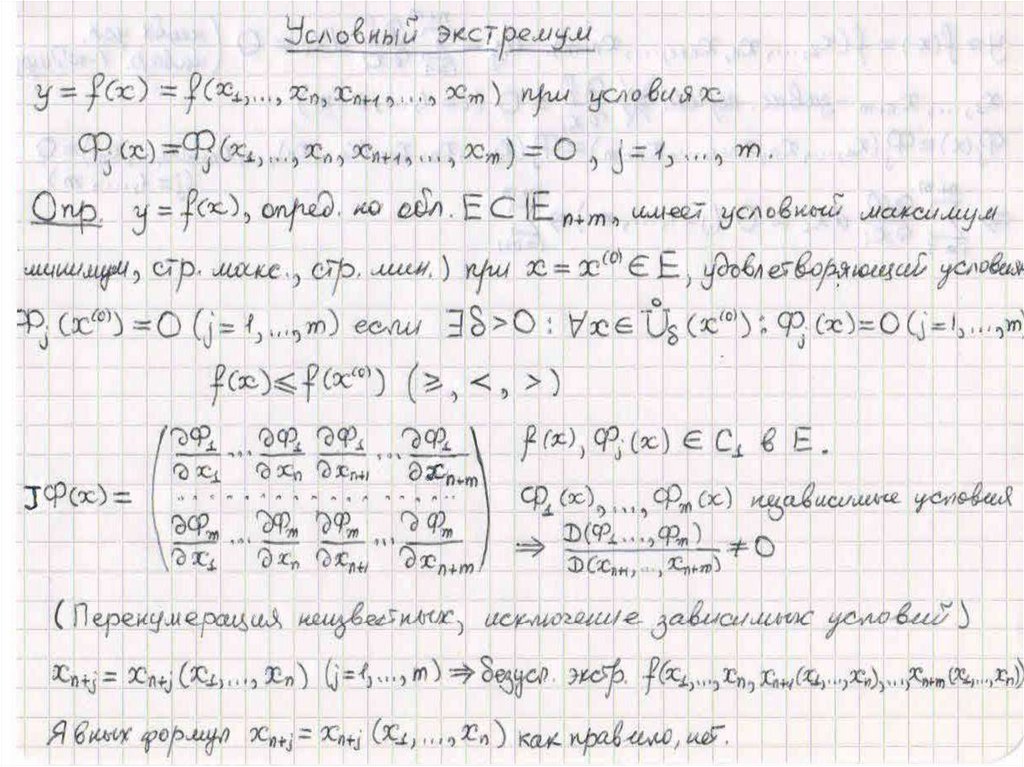 Условный экстремум
y = f(x) = f(x₁,..., xₙ, xₙ₊₁,..., xₘ) при условиях
Φⱼ(x) = Φⱼ(x₁,..., xₙ, xₙ₊₁,..., xₘ) = 0, j = 1, ..., m.
Опр. y = f(x), опред. на обл. E ⊂ 𝔼ₙ₊ₘ, имеет условный максимум
минимум, стр. макс., стр. мин.) при x = x⁽⁰⁾ ∈ E, удовлетворяющий условиям
Φⱼ(x⁽⁰⁾) = 0 (j = 1, ..., m) если ∃δ > 0 : ∀x ∈ Ůδ(x⁽⁰⁾) : Φⱼ(x) = 0 (j = 1, ..., m)
f(x) ⩽ f(x⁽⁰⁾) (⩾, <, >)
JΦ(x) = ( ∂Φ₁/∂x₁ ... ∂Φ₁/∂xₙ ∂Φ₁/∂xₙ₊₁ ... ∂Φ₁/∂xₙ₊ₘ
..................
∂Φₘ/∂x₁ ... ∂Φₘ/∂xₙ ∂Φₘ/∂xₙ₊₁ ... ∂Φₘ/∂xₙ₊ₘ )
f(x), Φⱼ(x) ∈ C₁ в E.
Φ₁(x), ..., Φₘ(x) независимые условия
⇒ D(Φ₁..., Φₘ)/D(xₙ₊₁, ..., xₙ₊ₘ) ≠ 0
(Перенумерация неизвестных, исключение зависимых условий)
xₙ₊ⱼ = xₙ₊ⱼ(x₁,..., xₙ) (j = 1, ..., m) ⇒ безусл. экстр. f(x₁,..., xₙ, xₙ₊₁(x₁,..., xₙ),..., xₙ₊ₘ(x₁,..., xₙ))
Явных формул xₙ₊ⱼ = xₙ₊ⱼ (x₁, ..., xₙ) как правило, нет.